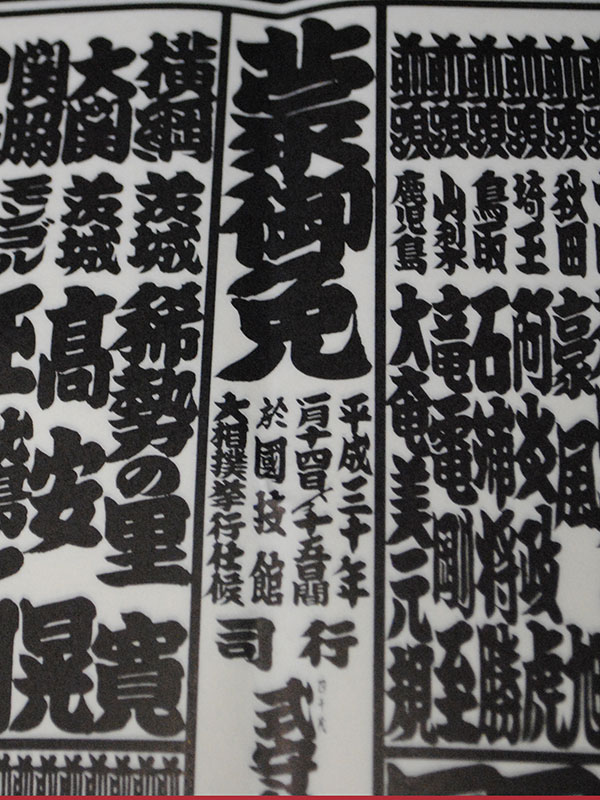 前頭 秋田 豪風 旭
前頭 埼玉 阿炎 政虎
前頭 鳥取 石浦 将勝
前頭 山梨 竜電 剛至
前頭 鹿児島 大奄美 元規
蒙御免
平成三十年
一月十四日ヨリ十五日間
於國技館
大相撲挙行仕候
行司
式守
横綱 茨城 稀勢の里 寛
大関 茨城 高安 晃
関脇 モンゴル 玉鷲 一